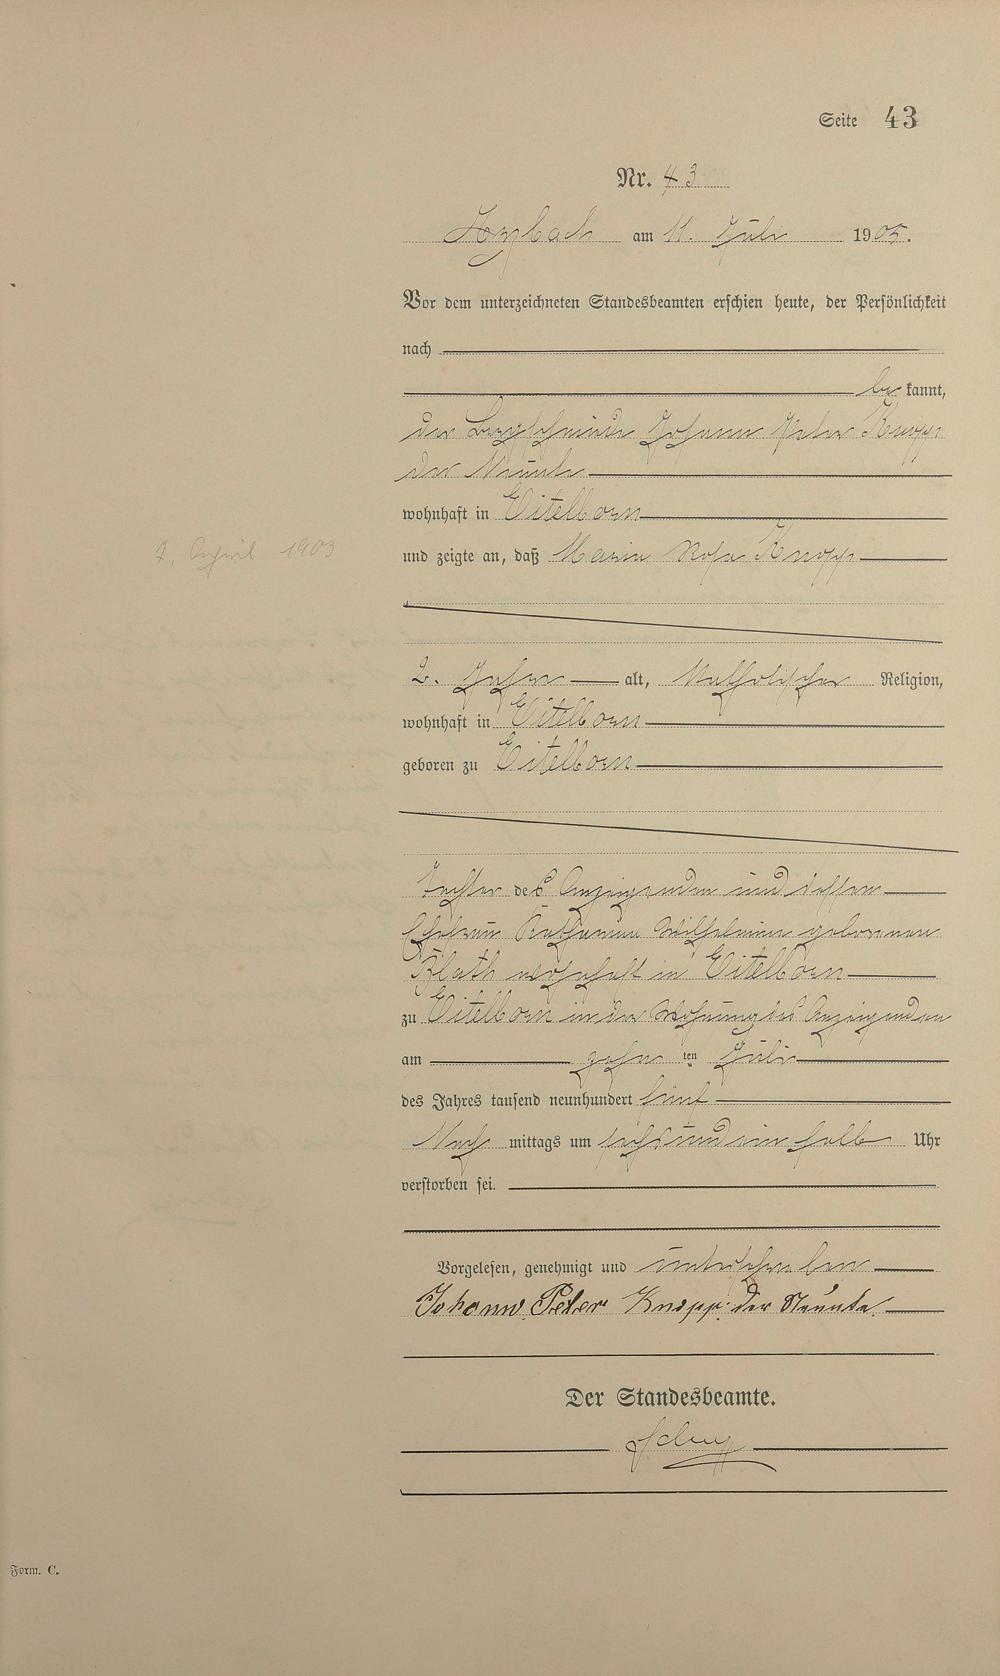 Seite 43
Nr. 43
Arzbach am 11. Juli 1905.
Vor dem unterzeichneten Standesbeamten erschien heute, der Persönlichkeit
nach
be kannt,
der Bergschmiede Johann Peter Knopp
der Neunte
wohnhaft in Eitelborn
7. April 1903
und zeigte an, daß Maria Rosa Knopp
2. Jahre alt, katholischer Religion,
wohnhaft in Eitelborn
geboren zu Eitelborn
Tochter des Anzeigenden und dessen
Ehefrau Katharina Wilhelmina geborenen
wohnhaft in Eitelborn
zu Eitelborn in der Wohnung des Anzeigenden
am zehn ten Juli
des Jahres tausend neunhundert fünf
Nach mittags um sechs und ein halb Uhr
verstorben sei.
Vorgelesen, genehmigt und unterschrieben
Johann Peter Knopp der Neunte
Der Standesbeamte.
Form. C.